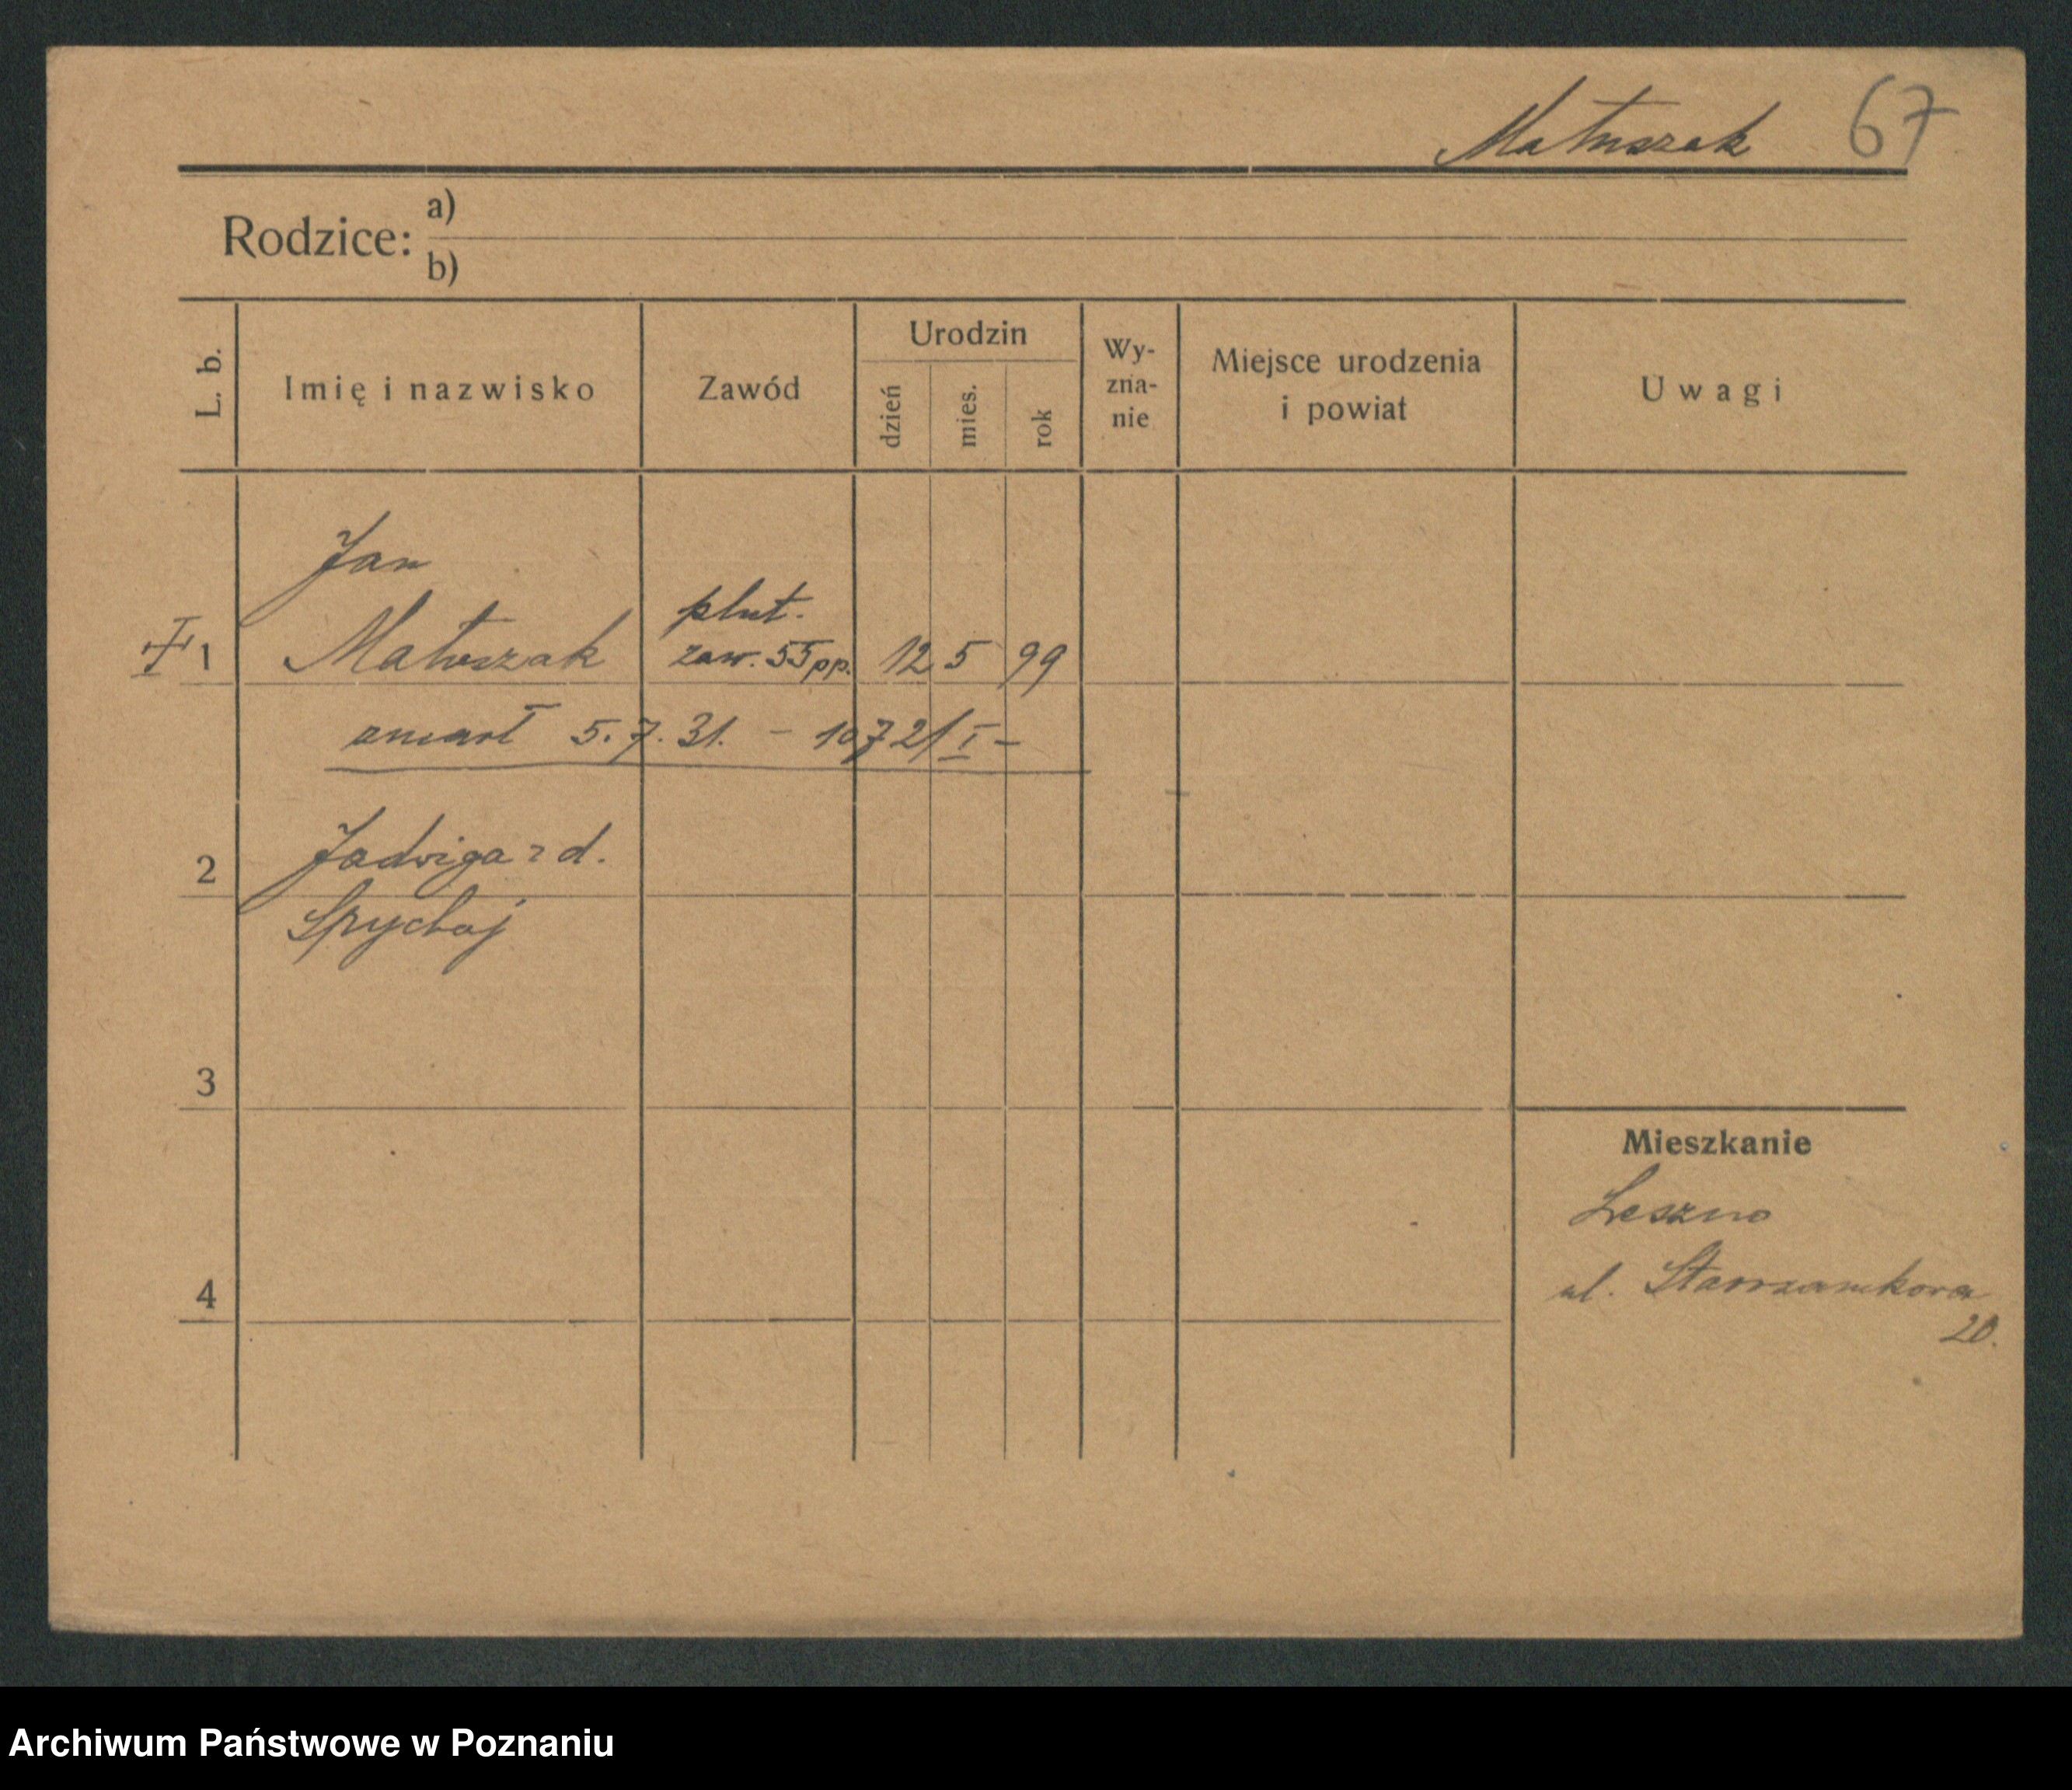 Matuszak 67
Rodzice: a)
b)
L. b. Imię i nazwisko Zawód Urodzin dzień mies. rok Wy-zna-nie Miejsce urodzenia i powiat Uwagi
Jan
plut.
1 Matuszak zaw. 55 pp. 12 5 99
zmarł 5.7.31. – 1072/I –
2 Jadwiga z d.
Spychaj
3
Mieszkanie
Leszno
4 ul. Starozamkowa
20.
Archiwum Państwowe w Poznaniu